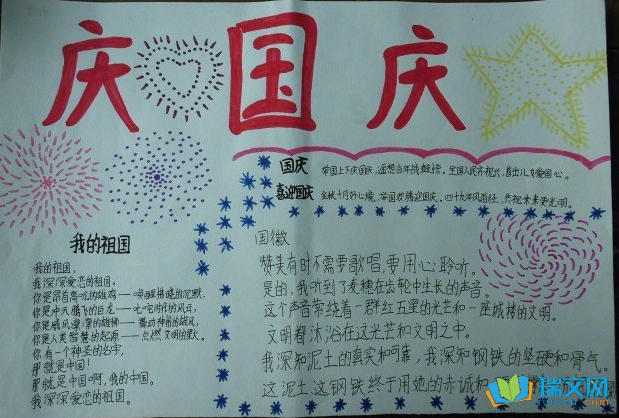 庆国庆
国庆
举国上下庆国庆,遥想当年战鼓擂。全国人民齐祝兴,皆出儿女爱国心。
喜迎国庆
金秋十月好心境,举国欢腾迎国庆。四十九年风雨经,共祝未来更光明。
我的祖国
我的祖国,
我深深爱恋的祖国。
你是昂首高吭的雄鸡——唤醒拂晓的沉默,
你是冲天腾飞的巨龙——叱咤时代的风云,
你是威风凛凛的雄狮——舞动神州的雄风,
你是人类智慧的起源——点燃文明的星火。
你有一个神圣的名字,
那就是中国!
那就是中国啊,我的中国。
我深深爱恋的祖国。
国徽
赞美有时不需要歌唱,要用心聆听。
是的,我听到了麦穗在齿轮中生长的声音。
这个声音萦绕着一群红五星的光芒和一座城楼的文明。
文明都沐浴在这光芒和文明之中。
我深知泥土的真实和可靠,我深知钢铁的坚硬和骨气。
这泥土这钢铁终于用她的赤诚和
瑞文网